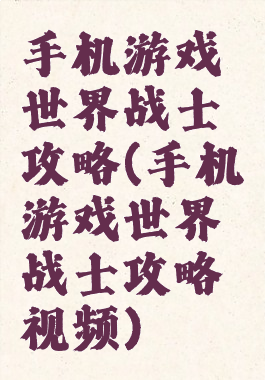 手机游戏
世界战士
攻略(手机
游戏世界
战士攻略
视频)